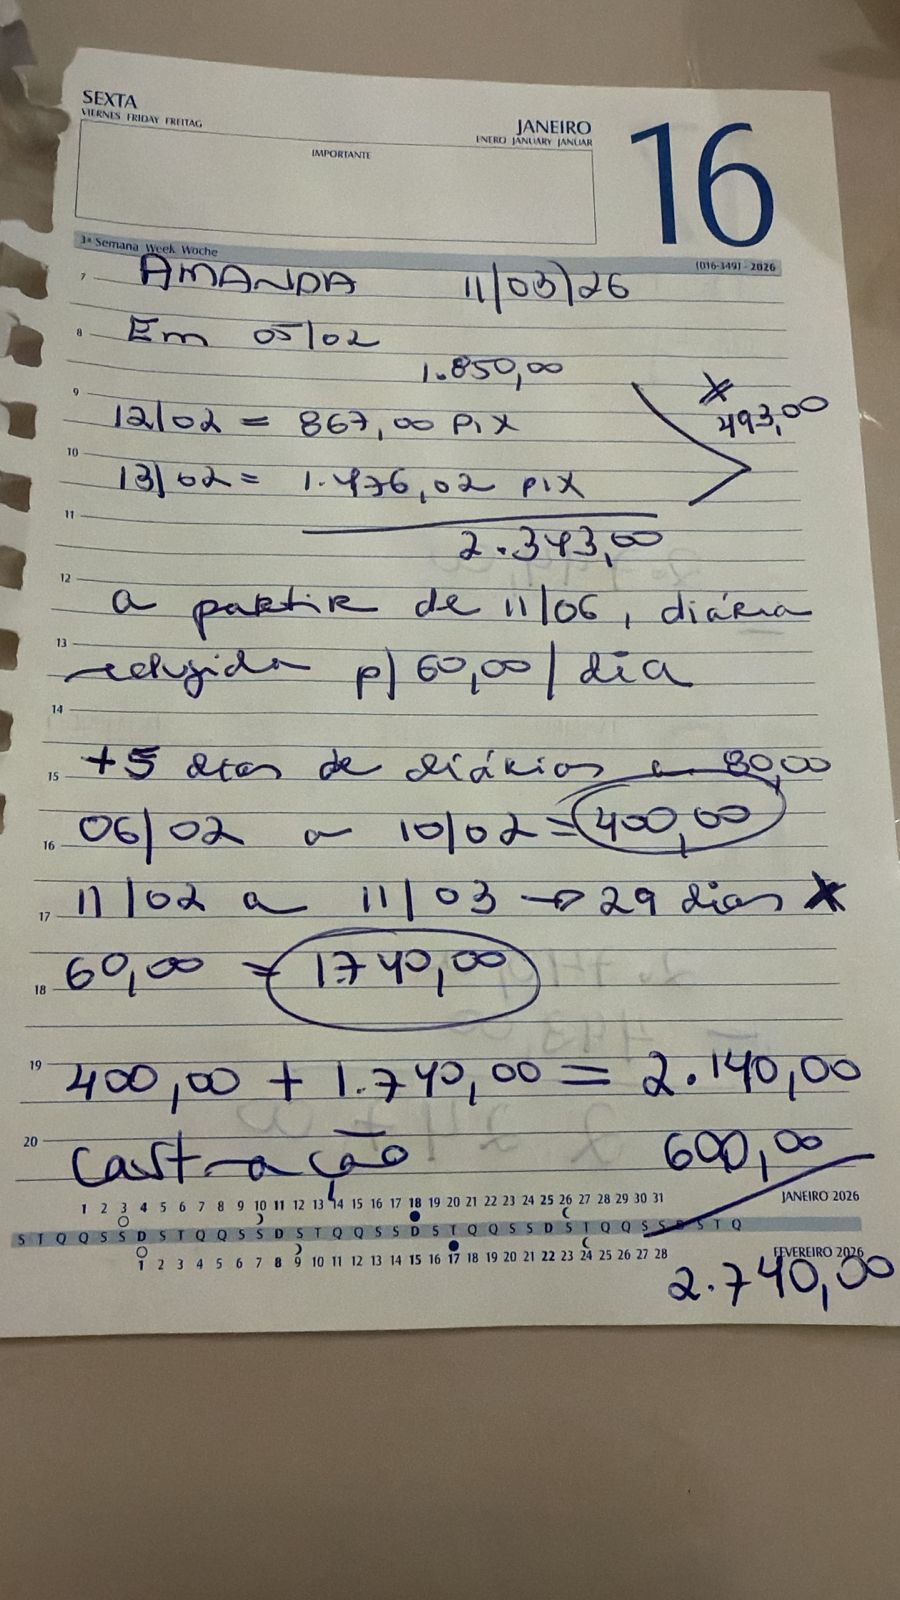 SEXTA
VIERNES FRIDAY FREITAG
JANEIRO
ENERO JANUARY JANUAR
16
IMPORTANTE
3ª Semana Week Woche
(016-349) - 2026
7 AMANDA 11/03/26
8 Em 05/02
1.850,00
9 12/02 = 867,00 PIX
* 493,00
10 13/02 = 1.476,02 PIX
11 2.343,00
12 a partir de 11/06, diária
13 reduzida p/ 60,00/dia
14
15 +5 dias de diárias a 80,00
16 06/02 a 10/02 = 400,00
17 11/02 a 11/03 → 29 dias *
18 60,00 = 1740,00
19 400,00 + 1.740,00 = 2.140,00
20 Castração 600,00
1 2 3 4 5 6 7 8 9 10 11 12 13 14 15 16 17 18 19 20 21 22 23 24 25 26 27 28 29 30 31 JANEIRO 2026
S T Q Q S S D S T Q Q S S D S T Q Q S S D S T Q Q S S D S T Q Q S S D S T Q
1 2 3 4 5 6 7 8 9 10 11 12 13 14 15 16 17 18 19 20 21 22 23 24 25 26 27 28 FEVEREIRO 2026
2.740,00